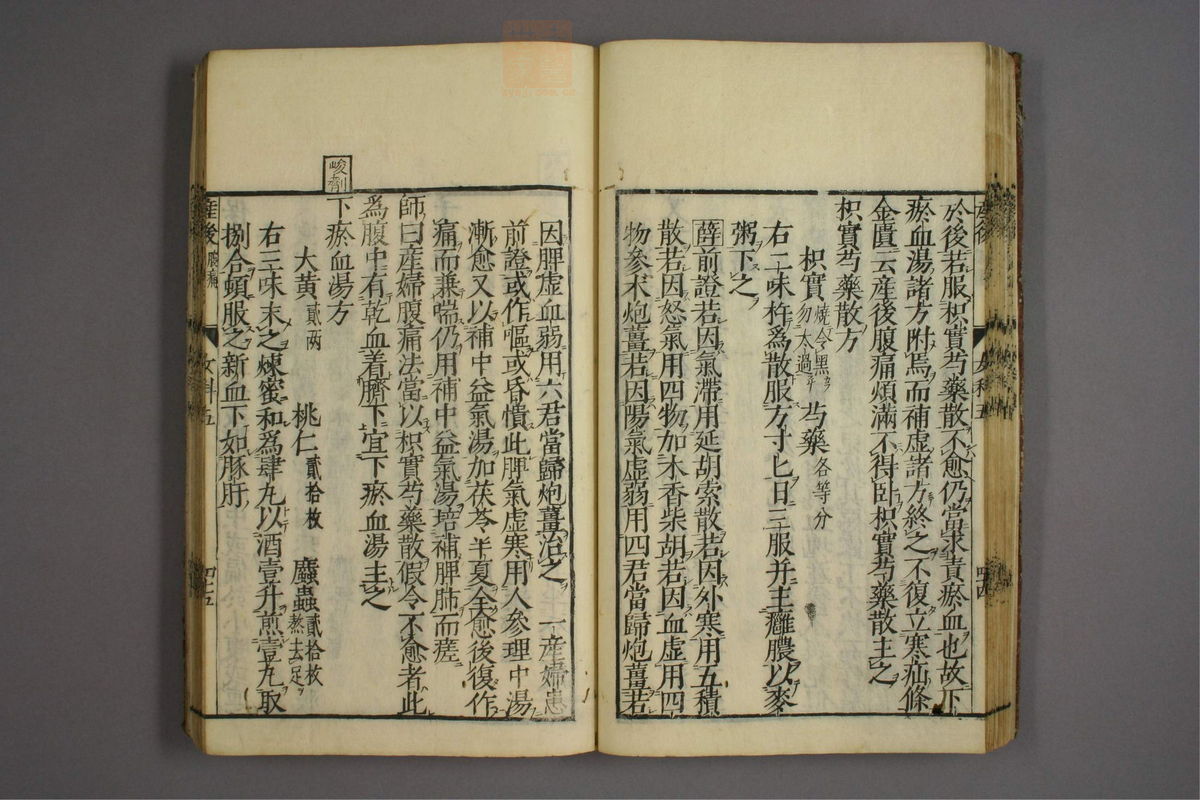 於後若服枳實芍藥散不愈仍當求責瘀血也故下
瘀血湯諸方附焉而補虛諸方終之不復立寒疝條
金匱云産後腹痛煩滿不得卧枳實芍藥散主之
枳實芍藥散方
枳實燒令黑勿太過 芍藥各等分
右二味杵爲散服方寸匕日三服并主癰膿以麥
粥下之
薛前證若因氣滯用延胡索散若因外寒用五積
散若因怒氣用四物加木香柴胡若因血虛用四
物參术炮薑若因陽氣虛弱用四君當歸炮薑若
女科五
四十四
因脾虛血弱用六君當歸炮薑治之 一産婦患
前證或作嘔或昏憒此脾氣虛寒用人參理中湯
漸愈又以補中益氣湯加茯苓半夏全愈後復作
痛而兼喘仍用補中益氣湯培補脾肺而瘥
師曰産婦腹痛法當以枳實芍藥散假令不愈者此
爲腹中有乾血着臍下宜下瘀血湯主之
峻劑
下瘀血湯方
大黄貳兩 桃仁貳拾枚 䗪蟲貳拾枚熬去足
右三味末之煉蜜和爲肆丸以酒壹升煎壹丸取
捌合頓服之新血下如豚肝
産後腹痛
女科五
四十五